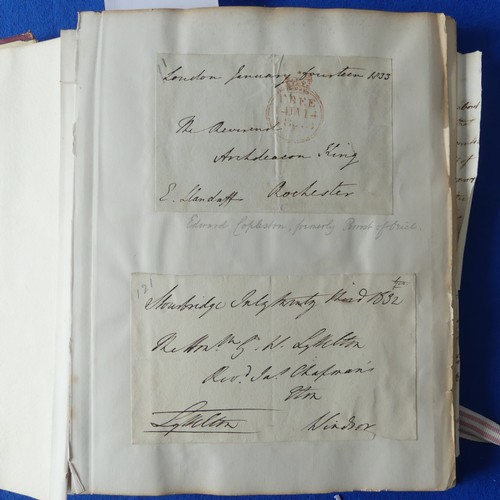 London January fourteen 1833
FREE
The Reverend
Archdeacon King
E. Llandaff Rochester
Edward Copleston, formerly Provost of Oriel.
121
Stourbridge July twenty third 1832
The Honble G. W. Lyttelton
Revd Jas Chapman's
Eton
Lyttelton Windsor